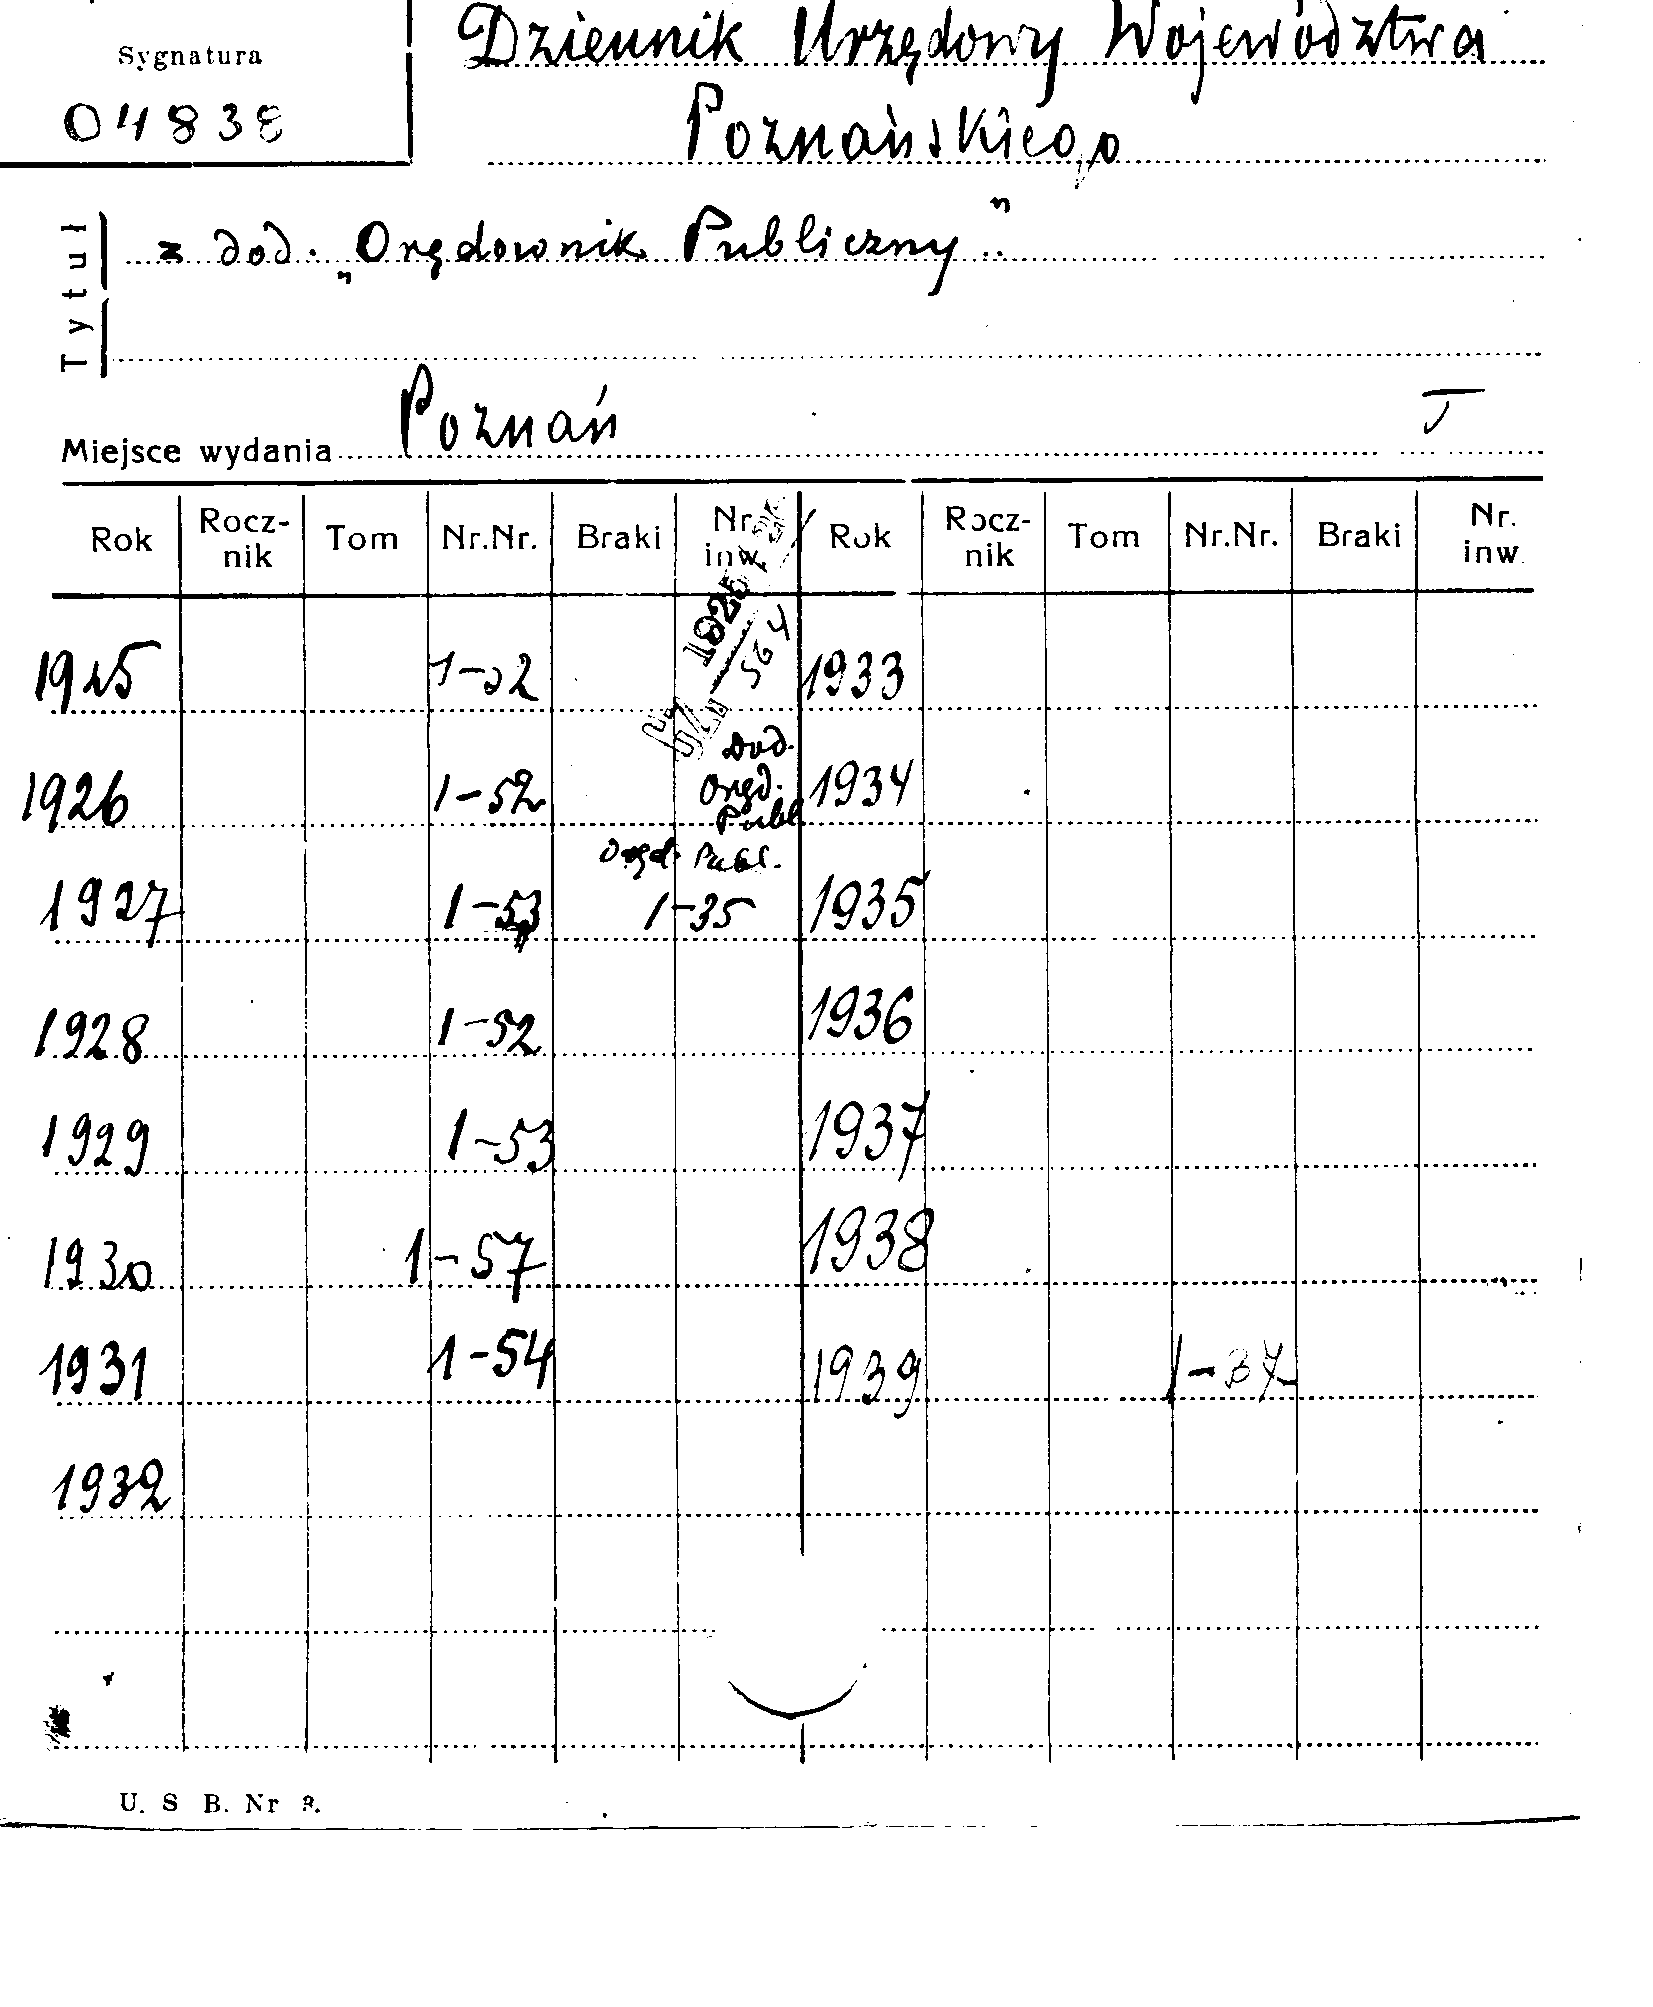 Sygnatura
04838
Dziennik Urzędowy Województwa
Poznańskiego
Tytuł
z dod. „Orędownik Publiczny"
Miejsce wydania Poznań I
Rok Rocz-nik Tom Nr.Nr. Braki Nr. inw. Rok Rocz-nik Tom Nr.Nr. Braki Nr. inw
1925 1-52 1933
Dod.
Oręd.
Publ
1926 1-52 1934
Oręd. Publ.
1927 1-53 1-35 1935
1928 1-52 1936
1929 1-53 1937
1930 1-57 1938
1931 1-54 1939 1-37
1932
U. S B. Nr